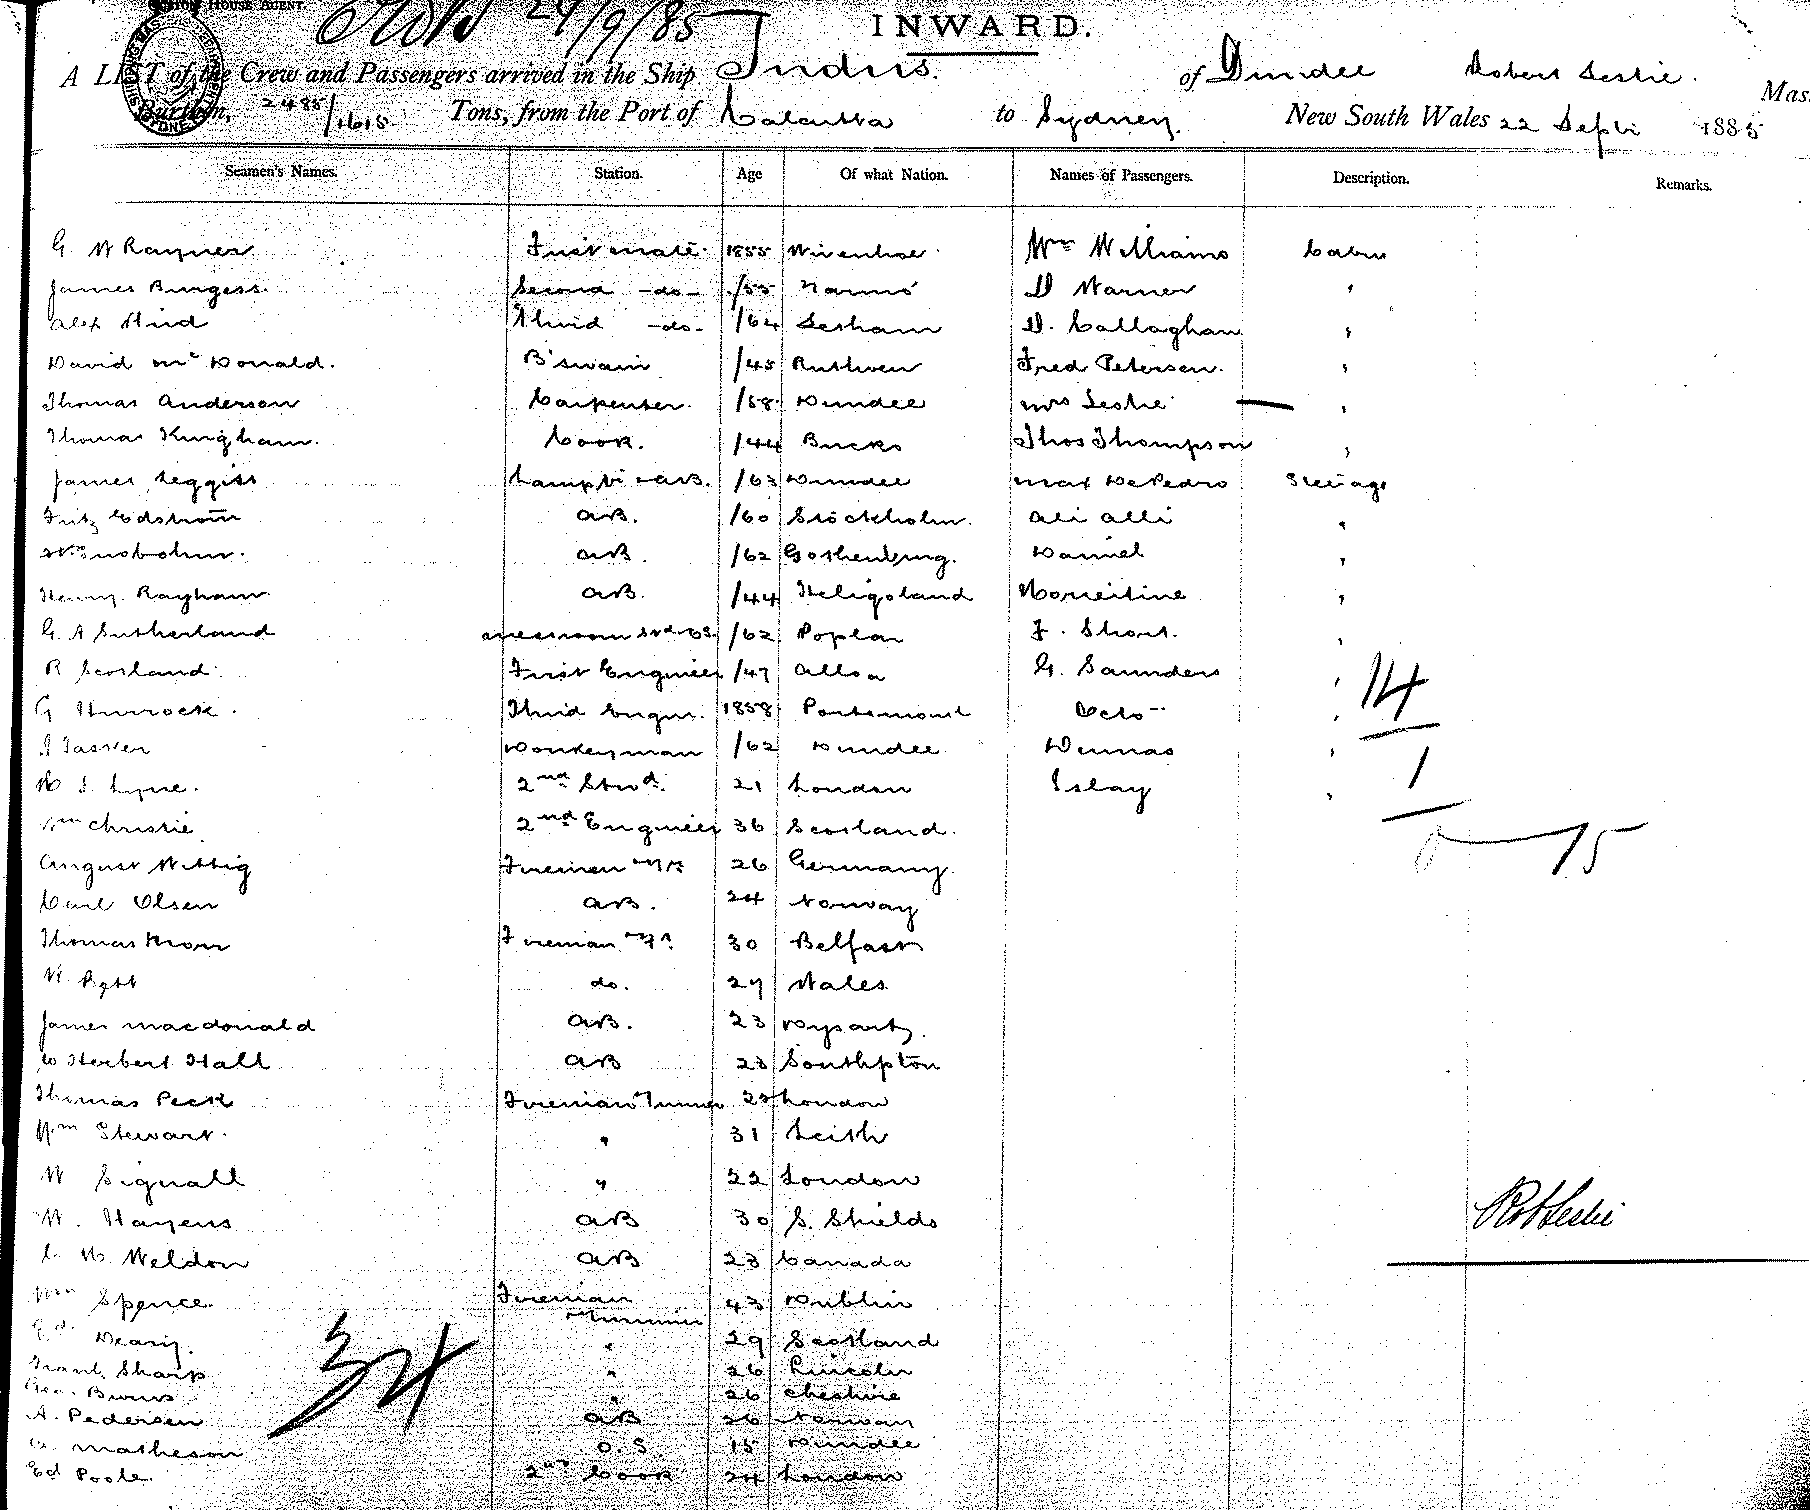 24/9/85
INWARD.
A LIST of the Crew and Passengers arrived in the Ship Indus. of Dundee Robert Leslie. Mas
Burthen, 2485/1615 Tons, from the Port of Calcutta to Sydney. New South Wales 22 Septr 1885
Seamen's Names. Station. Age Of what Nation. Names of Passengers. Description. Remarks.
G W Rayner First mate. 1855 Wivenhoe Wm Williams Cabin
James Burgess. Second -do- /55 D Warner "
Alex Hird Third -do- /64 D. Callaghan "
David Mc Donald. B'swain /45 Ruthven Fred Petersen. "
Thomas Anderson Carpenter. /58 Dundee Mrs Leslie "
Thomas Kingham. Cook. /44 Bucks Thos Thompson "
James Leggist Lamp tr + AB. /63 Dundee Max DePedro Steerage
Fritz Edstrom AB. /60 Stockholm. Ali Alli "
AB. /62 Gothenburg. Daniel "
Henry Rayham AB. /44 Heligoland "
G. A Sutherland Messroom Std OS. /62 Poplar F. Short. "
R Scotland First Engineer /47 Alloa G. Saunders " 14
G Hurrock. Third Engnr. 1858 Octo "
J Tasker Donkeyman /62 Dundee Dumas " 1
2nd Stwd. 21 London Islay "
Wm Christie 2nd Engineer 36 Scotland.
15
August Wittig Fireman Tr 26 Germany.
Carl Olsen AB. 24 Norway
Thomas Fireman Tr 30 Belfast
W. do. 27 Wales
James Macdonald AB. 23 Dysart.
W Herbert Hall AB 23 Southpton
Thomas Peck Fireman Trimmer 23 London
Wm Stewart. " 31 Leith
W Signall " 22 London
W. Hayens AB 30 S. Shields
C. W. Weldon AB 23 Canada
Robt Leslie
Wm Spence Fireman Trimmer 43 Dublin
Ed. " 29 Scotland
Frank Sharp " 26 Lincoln
Geo. Burns " 26 Cheshire
34
A. Pedersen AB 26 Norway
Matheson O.S. 15 Dundee
Ed Poole. 2nd Cook 24 London